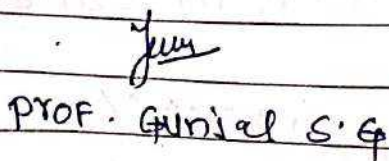 PROF. Gunjal S.G